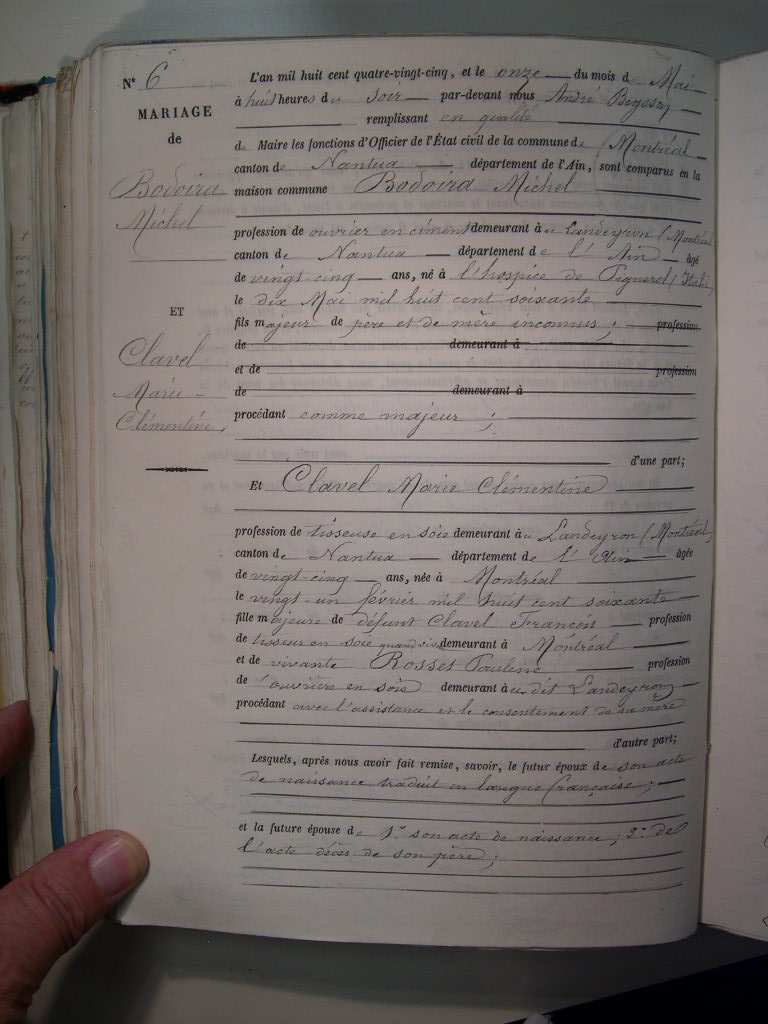 N° 6
MARIAGE
de
Bodoira
Michel
ET
Clavel
Marie
Clémentine,
L'an mil huit cent quatre-vingt-cinq, et le onze du mois de Mai
à huit heures du soir par-devant nous André
remplissant en qualité
de Maire les fonctions d'Officier de l'État civil de la commune de Montréal
canton de Nantua département de l'Ain, sont comparus en la
maison commune Bodoira Michel
profession de ouvrier en ciment demeurant à au Landeyron (Montréal
canton de Nantua département de l'Ain âgé
de vingt-cinq ans, né à l'hospice de Pignerol (Italie)
le dix Mai mil huit cent soixante
fils majeur de père et de mère inconnus ; profession
de demeurant à
et de profession
de demeurant à
procédant comme majeur ;
d'une part;
Et Clavel Marie Clémentine
profession de tisseuse en soie demeurant à au Landeyron (Montréal)
canton de Nantua département de l'Ain âgée
de vingt-cinq ans, née à Montréal
le vingt-un février mil huit cent soixante
fille majeure de défunt Clavel François profession
de tisseur en soie quand vivait demeurant à Montréal
et de vivante Rosset Pauline profession
de ouvrière en soie demeurant à au dit Landeyron
procédant avec l'assistance et le consentement de sa mère
d'autre part;
Lesquels, après nous avoir fait remise, savoir, le futur époux de son acte
de naissance traduit en langue française ;
et la future épouse de 1° son acte de naissance ; 2° de
l'acte décès de son père ;